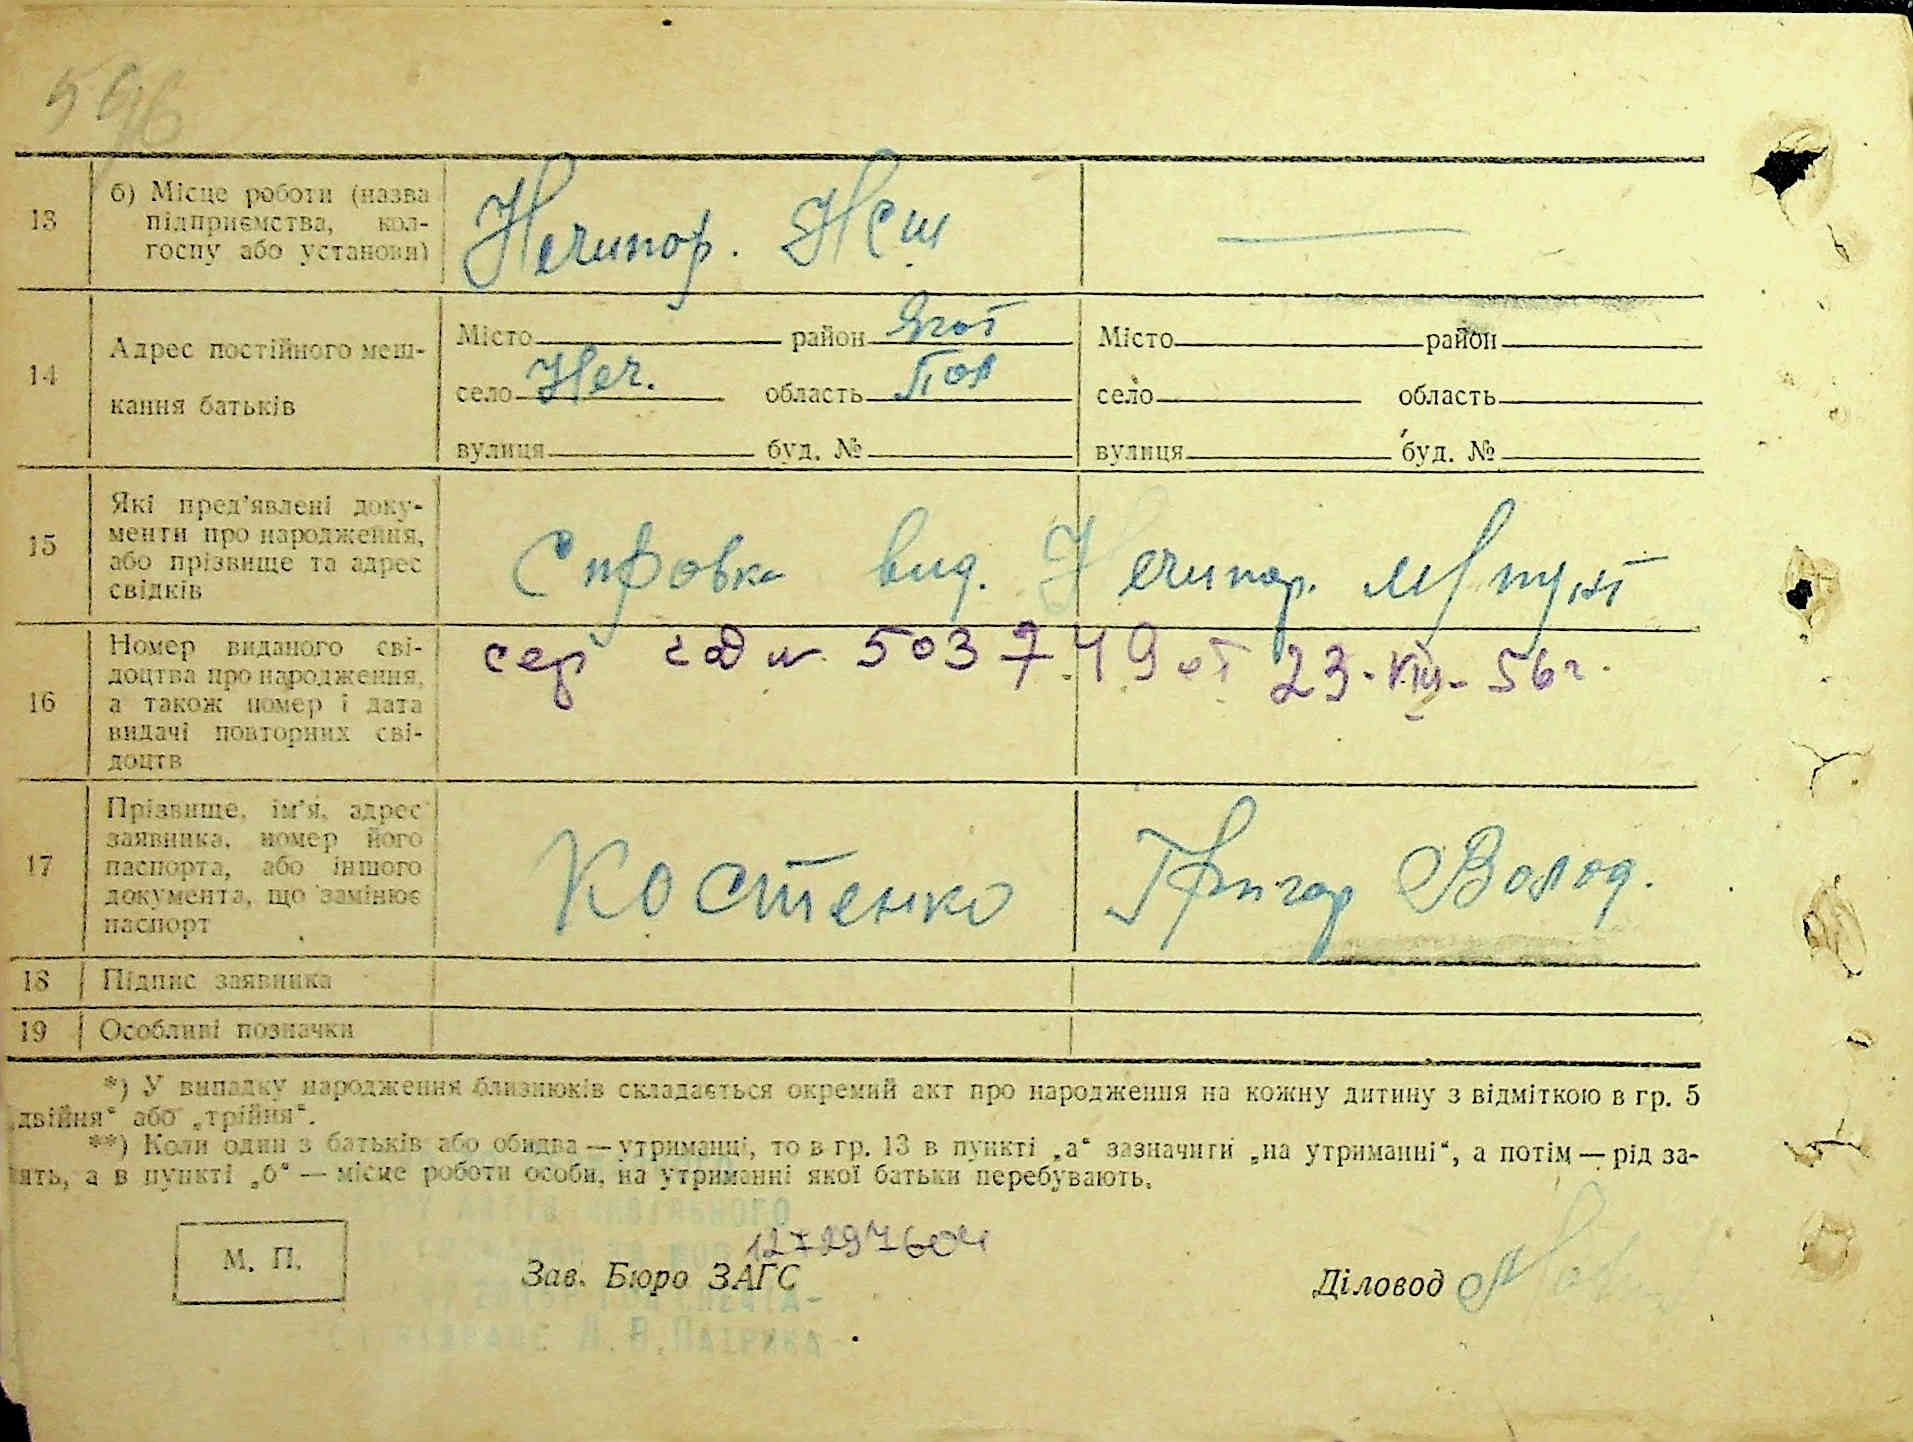 596
13 б) Місце роботи (назва підприємства, колгоспу або установи) Нечипор. НСШ —
14 Адрес постійного мешкання батьків
Місто район Ягот Місто район
село Неч. область Пол село область
вулиця буд. № вулиця буд. №
15 Які пред'явлені документи про народження, або прізвище та адрес свідків
Справка вид. Нечипор.
16 Номер виданого свідоцтва про народження, а також номер і дата видачі повторних свідоцтв
сер № 503749 от 23-VIII-56г.
17 Прізвище, ім'я, адрес заявника, номер його паспорта, або іншого документа, що замінює паспорт
Костенко Григор Волод.
18 Підпис заявника
19 Особливі позначки
*) У випадку народження близнюків складається окремий акт про народження на кожну дитину з відміткою в гр. 5
„двійня“ або „трійня“.
**) Коли один з батьків або обидва — утриманці, то в гр. 13 в пункті „а“ зазначити „на утриманні“, а потім — рід за-
нять, а в пункті „б“ — місце роботи особи, на утриманні якої батьки перебувають.
М. П.
Зав. Бюро ЗАГС
Діловод